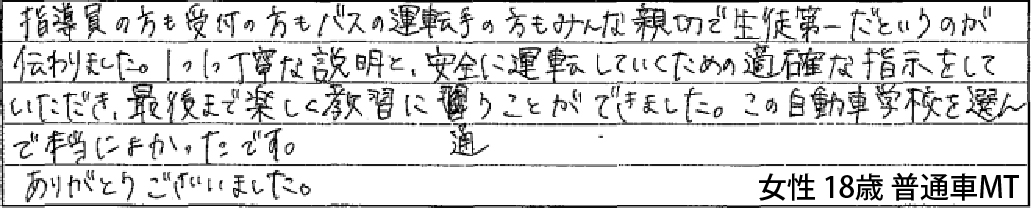 指導員の方も受付の方もバスの運転手の方もみんな親切で生徒第一だというのが
伝わりました。1つ1つ丁寧な説明と、安全に運転していくための適確な指示をして
いただき、最後まで楽しく教習に通うことができました。この自動車学校を選ん
で本当によかったです。
ありがとうございました。
女性 18歳 普通車MT